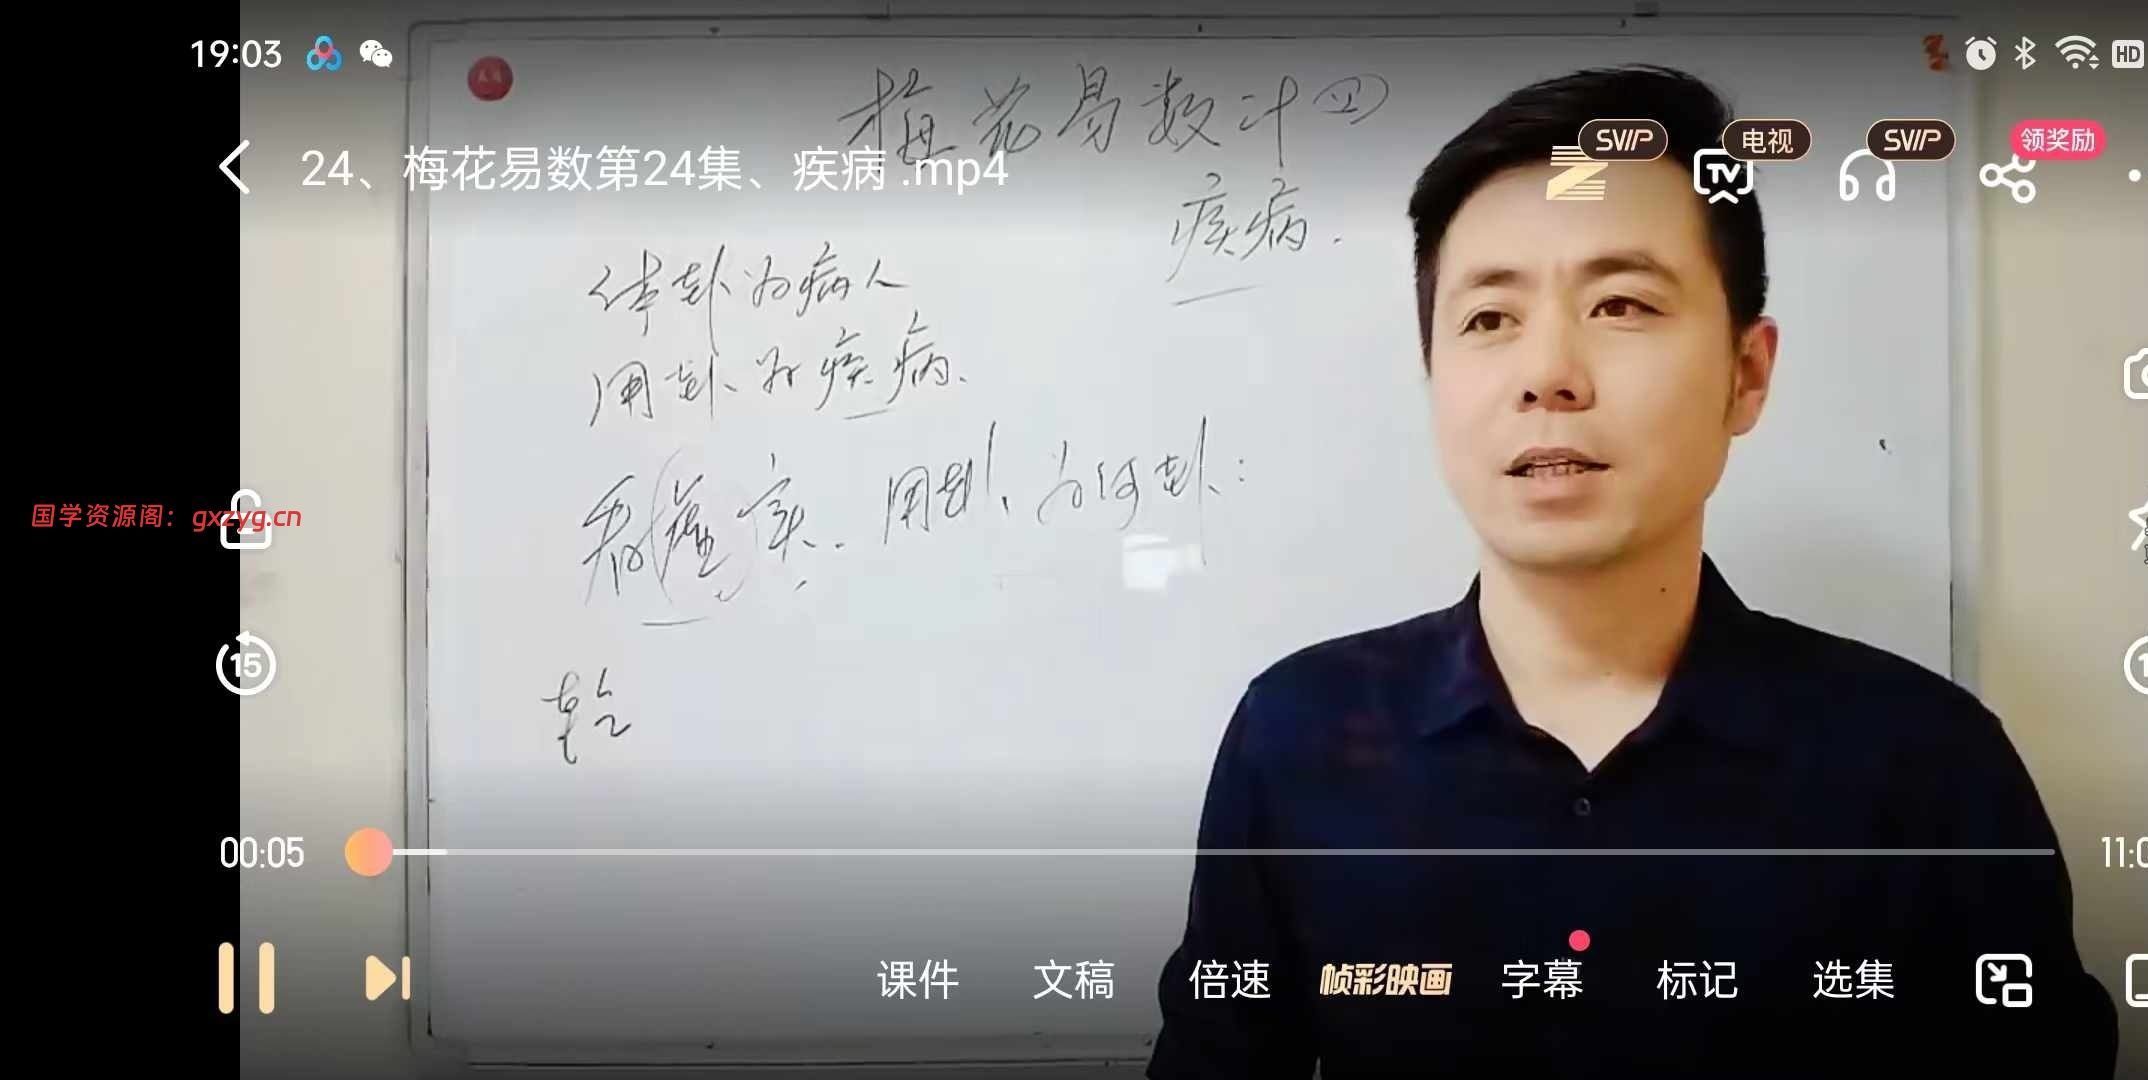 19:03
HD
梅花易数廿四
SVIP
电视
SVIP
领奖励
24、梅花易数第24集、疾病 .mp4
TV
疾病.
体卦为病人
用卦为疾病.
看虚实.用卦、为何卦:
国学资源阁：gxzyg.cn
15
乾
00:05
课件 文稿 倍速 帧彩映画 字幕 标记 选集